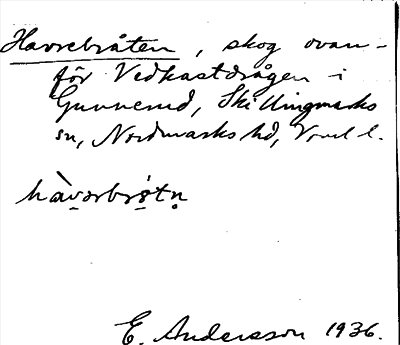 Havrebråten, skog ovan-
för Vedkastdrågen i
Gunnerud, Skillingmarks
sn, Nordmarks hd, Vrml l.
hàvərbrọ́tn̥
E. Andersson 1936.